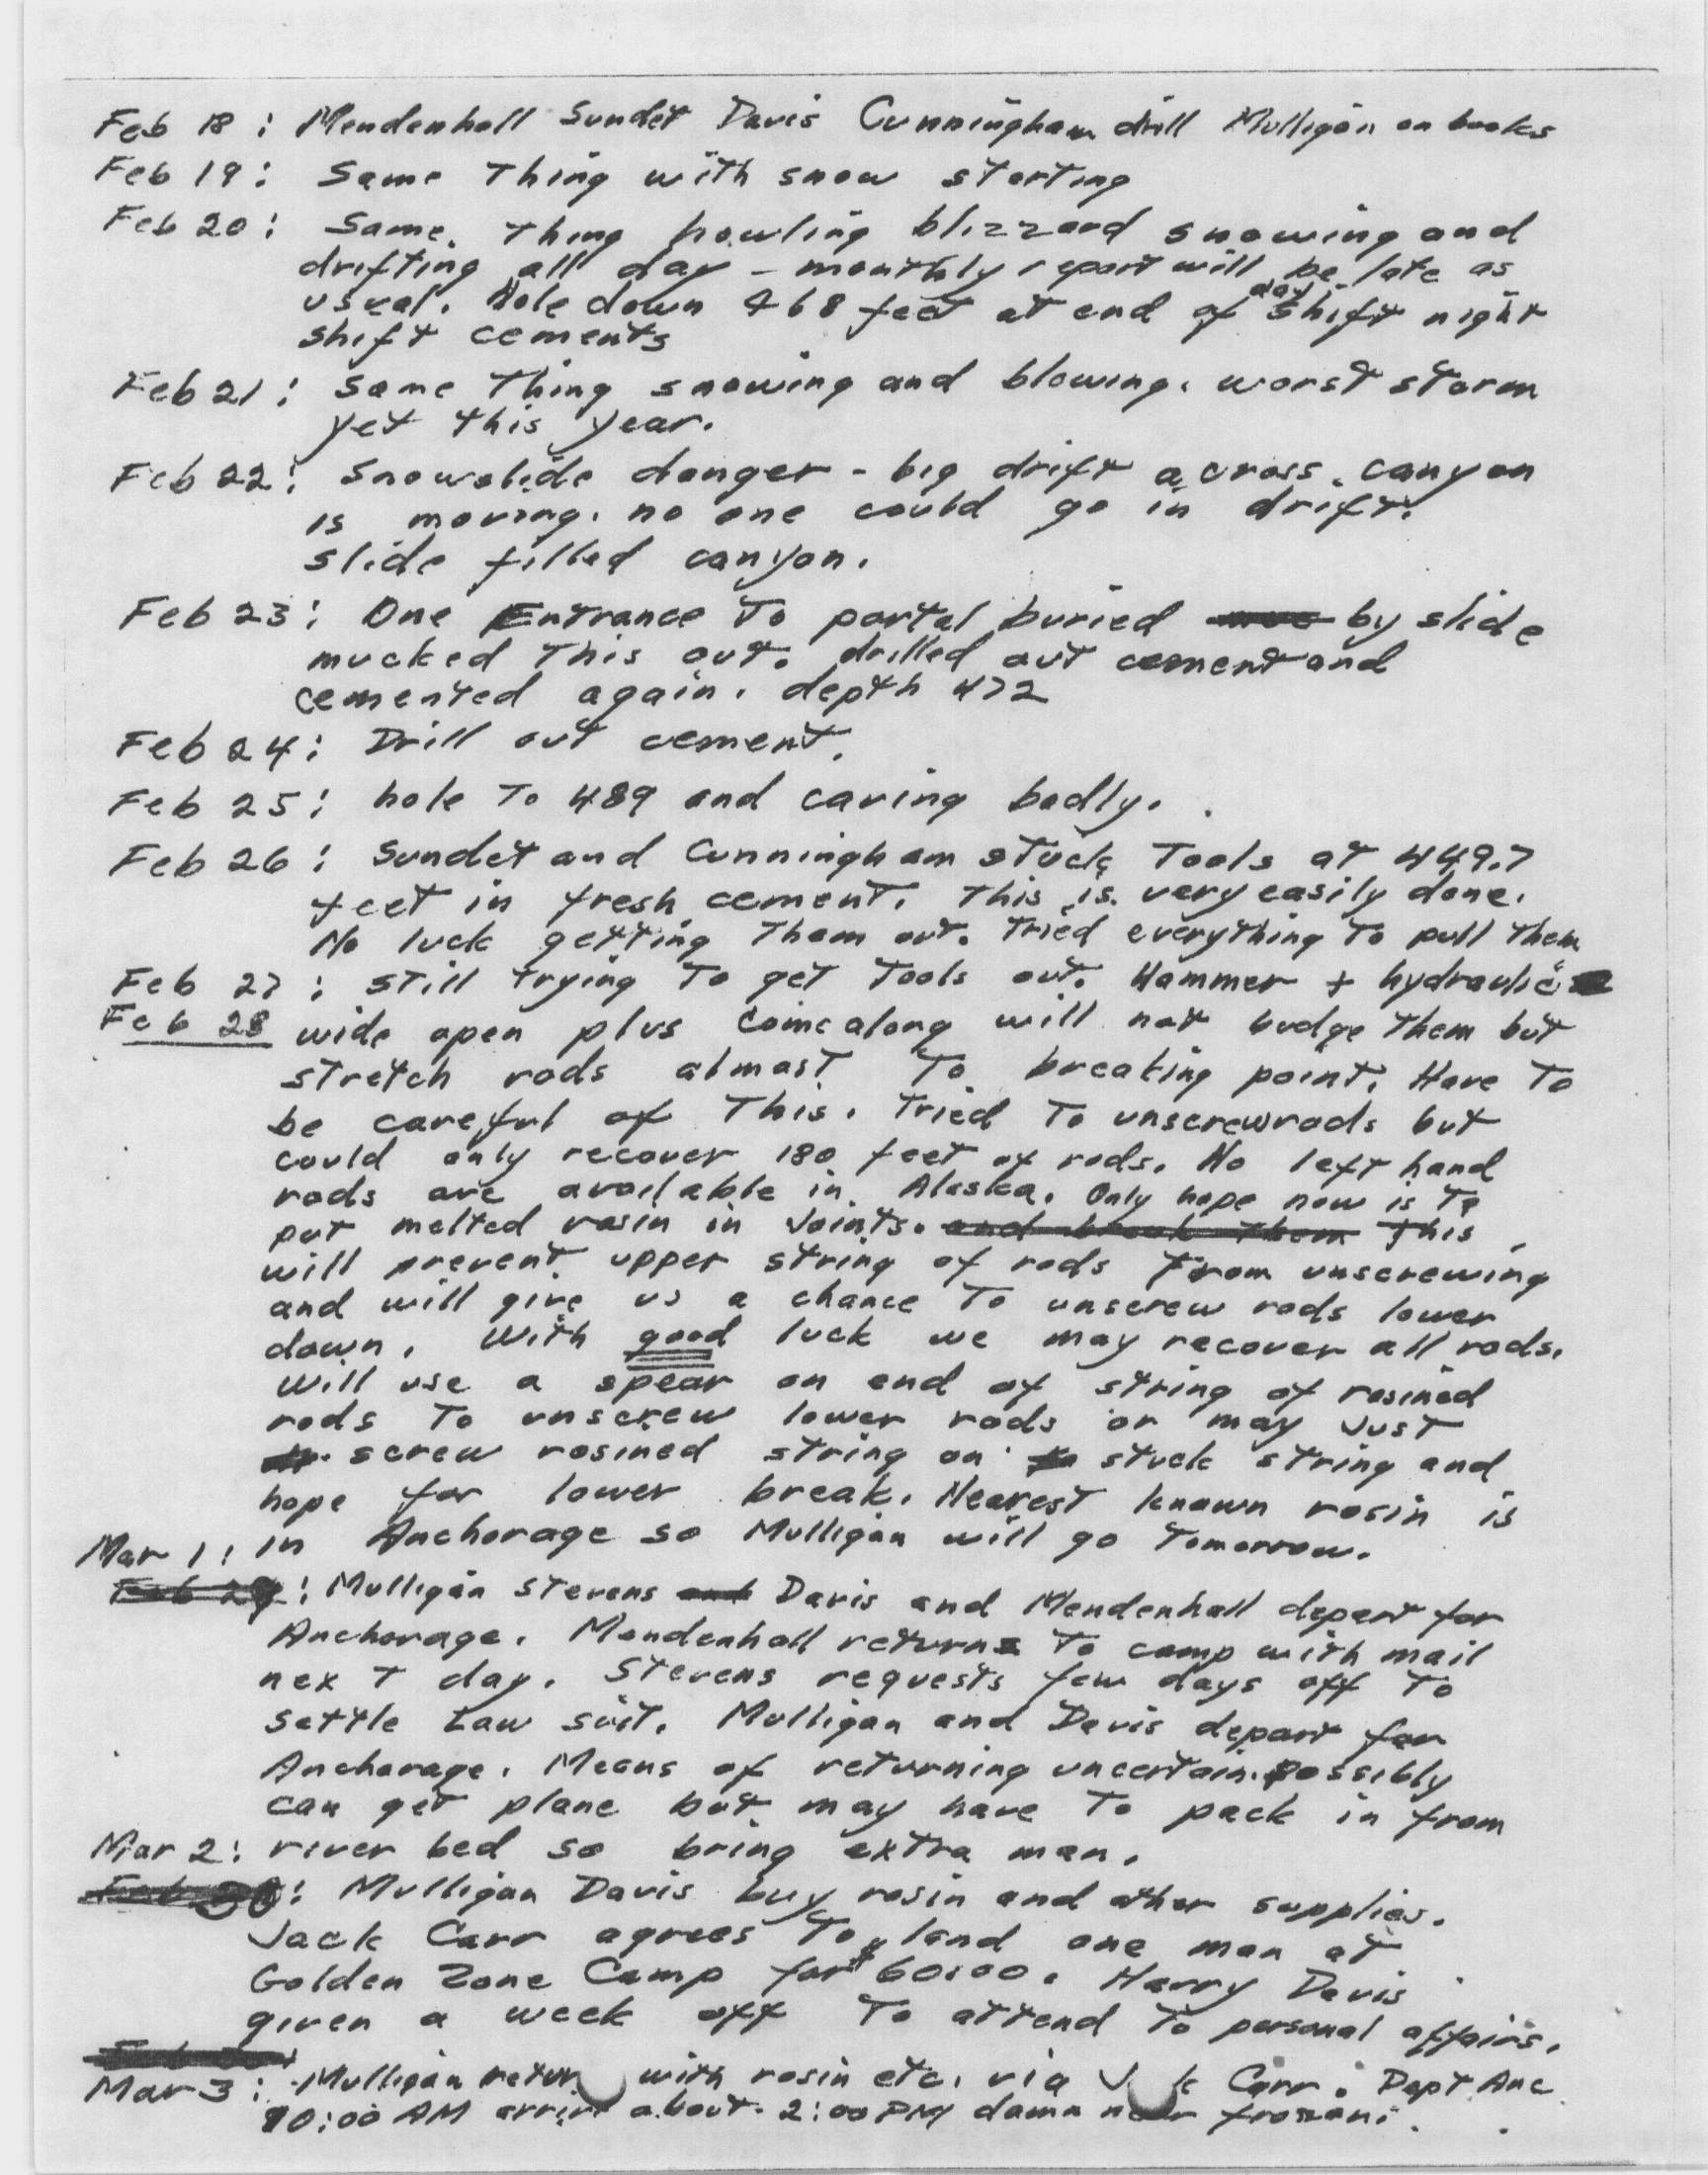 Feb 18: Mendenhall Sundet Davis Cunningham drill Mulligan on books
Feb 19: Same thing with snow starting
Feb 20: Same thing howling blizzard snowing and
drifting all day - monthly report will be late as
usual. Hole down 468 feet at end of day shift night
shift cements
Feb 21: Same thing snowing and blowing. worst storm
yet this year.
Feb 22: Snowslide danger - big drift across canyon
is moving. no one could go in drift.
slide filled canyon.
Feb 23: One Entrance to portal buried by slide
mucked this out. drilled out cement and
cemented again. depth 472
Feb 24: Drill out cement.
Feb 25: hole to 489 and caving badly.
Feb 26: Sundet and Cunningham stuck tools at 449.7
feet in fresh cement. This is very easily done.
No luck getting them out. Tried everything to pull them
Feb 27: still trying to get tools out. Hammer + hydraulic
Feb 28 wide open plus comealong will not budge them but
stretch rods almost to breaking point. Have to
be careful of this. Tried to unscrew rods but
could only recover 180 feet of rods. No left hand
rods are available in Alaska. Only hope now is to
put melted rosin in joints. and break them This
will prevent upper string of rods from unscrewing
and will give us a chance to unscrew rods lower
down. With good luck we may recover all rods.
Will use a spear on end of string of rosined
rods to unscrew lower rods or may just
screw rosined string on to stuck string and
hope for lower break. Nearest known rosin is
in Anchorage so Mulligan will go tomorrow.
Mar 1:
Feb 29: Mulligan Stevens and Davis and Mendenhall depart for
Anchorage. Mendenhall returns to camp with mail
next day. Stevens requests few days off to
settle Law suit. Mulligan and Davis depart for
Anchorage. Means of returning uncertain. Possibly
can get plane but may have to pack in from
river bed so bring extra man.
Mar 2:
Feb 30: Mulligan Davis buy rosin and other supplies.
Jack Carr agrees to land one man at
Golden Zone Camp for $60.00. Harry Davis
given a week off to attend to personal affairs.
Mar 3: Mulligan with rosin etc. via Carr. Dept Anc
10:00 AM arrive about 2:00 PM damn near frozen.